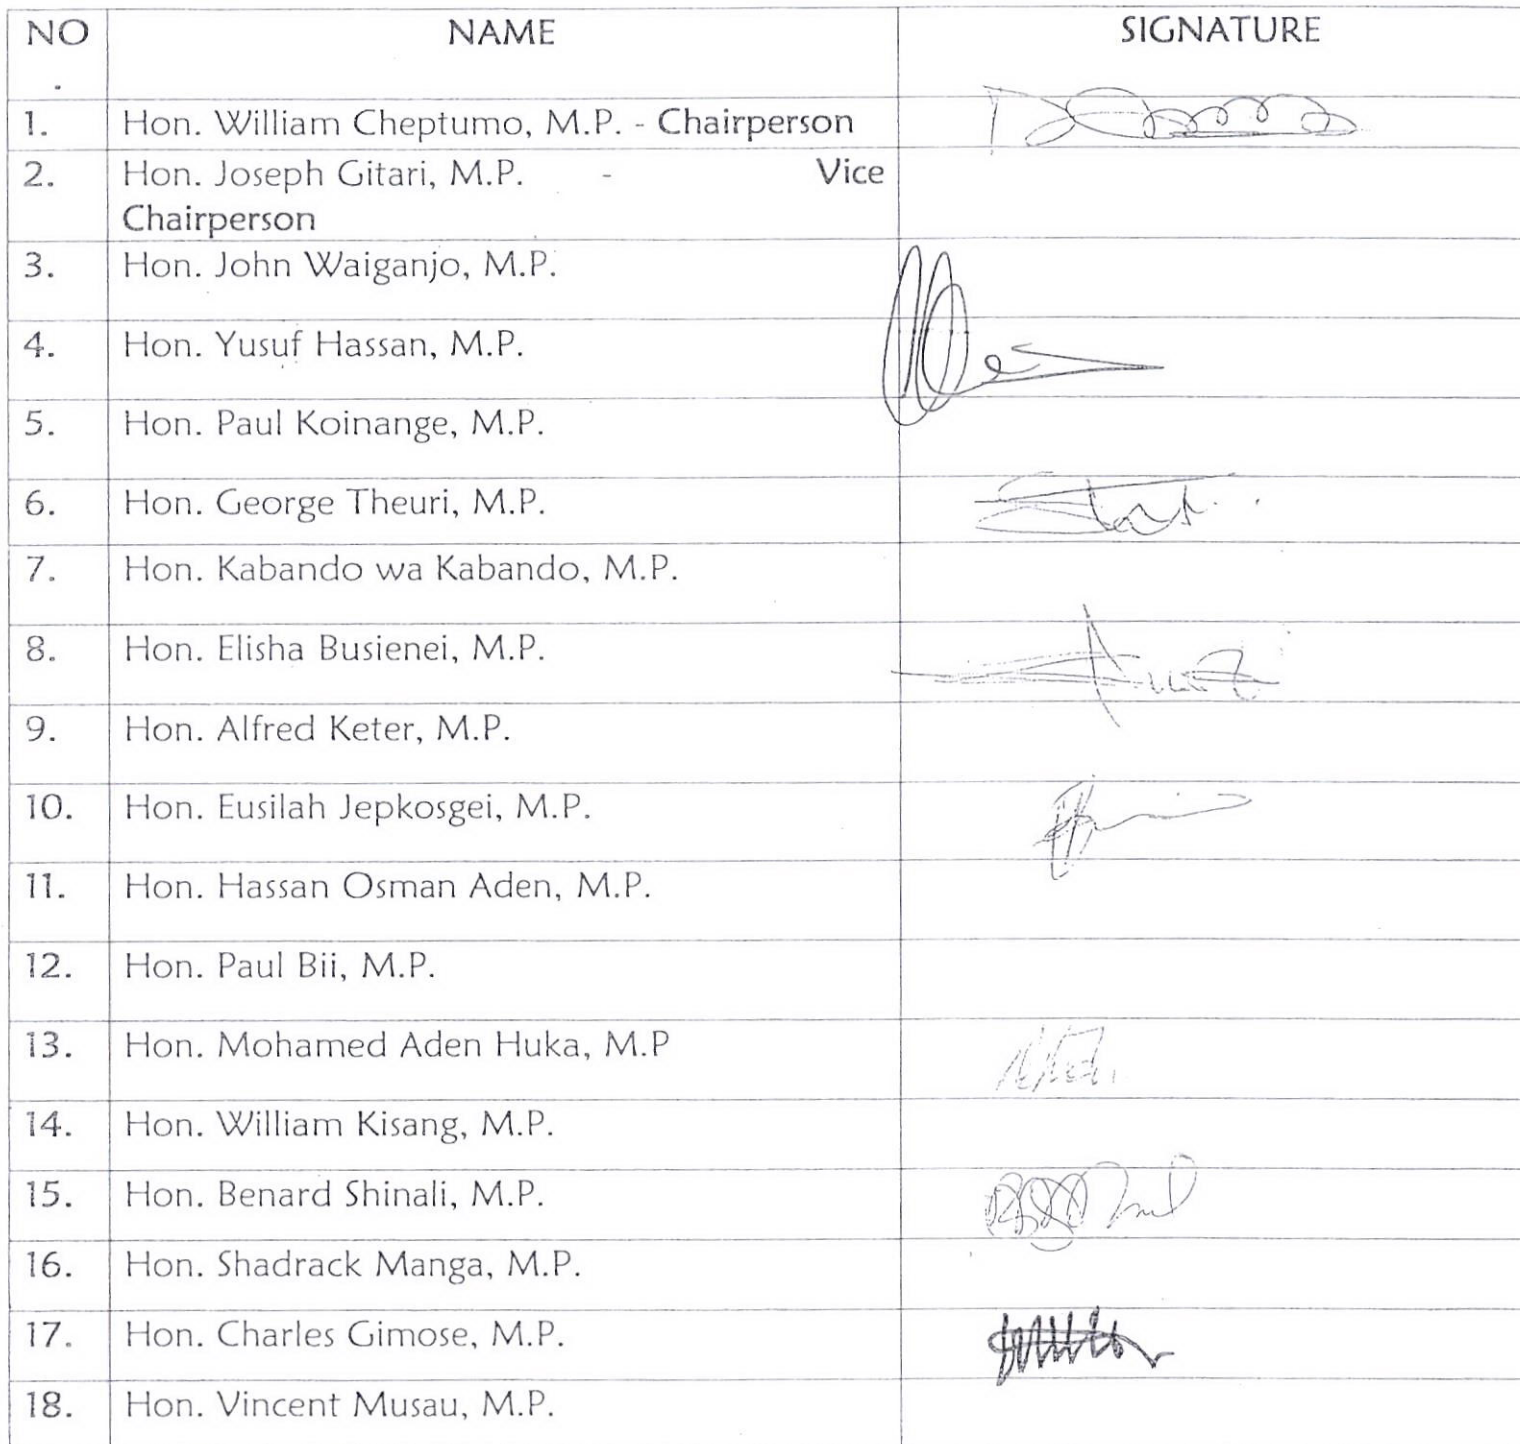 NO NAME SIGNATURE
.
1. Hon. William Cheptumo, M.P. - Chairperson
2. Hon. Joseph Gitari, M.P. - Vice
Chairperson
3. Hon. John Waiganjo, M.P.
4. Hon. Yusuf Hassan, M.P.
5. Hon. Paul Koinange, M.P.
6. Hon. George Theuri, M.P.
7. Hon. Kabando wa Kabando, M.P.
8. Hon. Elisha Busienei, M.P.
9. Hon. Alfred Keter, M.P.
10. Hon. Eusilah Jepkosgei, M.P.
11. Hon. Hassan Osman Aden, M.P.
12. Hon. Paul Bii, M.P.
13. Hon. Mohamed Aden Huka, M.P
14. Hon. William Kisang, M.P.
15. Hon. Benard Shinali, M.P.
16. Hon. Shadrack Manga, M.P.
17. Hon. Charles Gimose, M.P.
18. Hon. Vincent Musau, M.P.